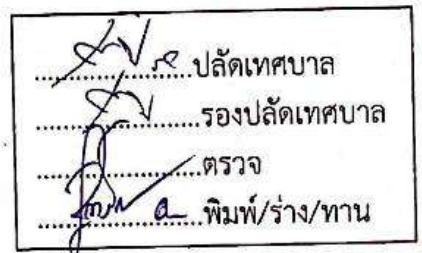 ....................ปลัดเทศบาล
....................รองปลัดเทศบาล
....................ตรวจ
....................พิมพ์/ร่าง/ทาน